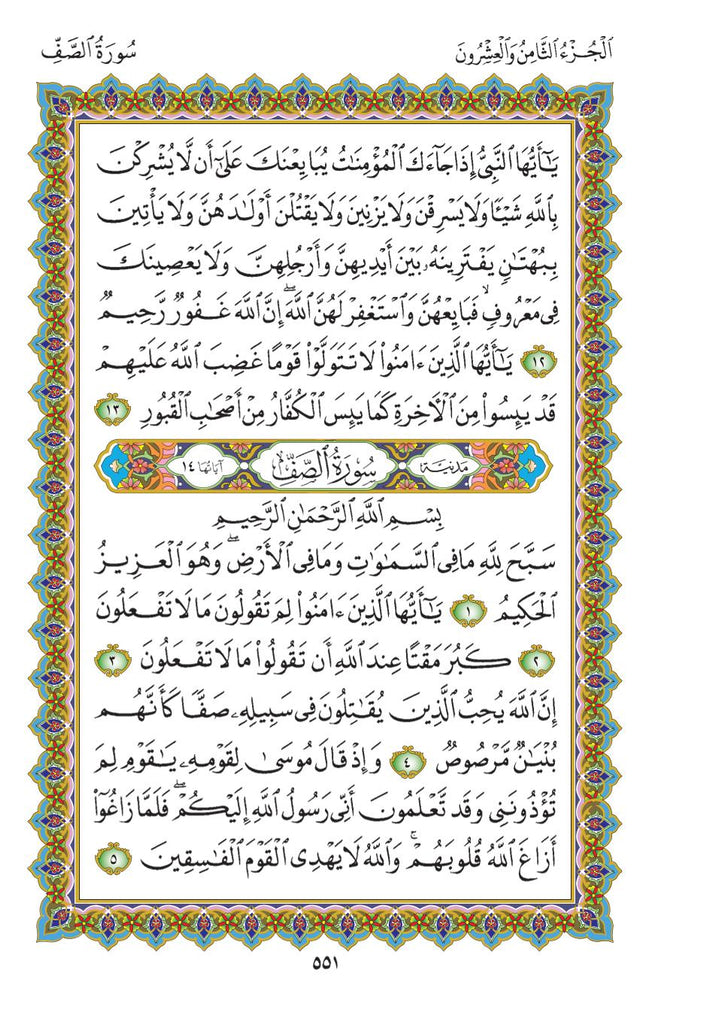 الْجُزْءُ الثَّامِنُ وَالْعِشْرُونَ
سُورَةُ الصَّفِّ
يَٰٓأَيُّهَا ٱلنَّبِىُّ إِذَا جَآءَكَ ٱلْمُؤْمِنَٰتُ يُبَايِعْنَكَ عَلَىٰٓ أَن لَّا يُشْرِكْنَ
بِٱللَّهِ شَيْـًٔا وَلَا يَسْرِقْنَ وَلَا يَزْنِينَ وَلَا يَقْتُلْنَ أَوْلَٰدَهُنَّ وَلَا يَأْتِينَ
بِبُهْتَٰنٍ يَفْتَرِينَهُۥ بَيْنَ أَيْدِيهِنَّ وَأَرْجُلِهِنَّ وَلَا يَعْصِينَكَ
فِى مَعْرُوفٍ ۙ فَبَايِعْهُنَّ وَٱسْتَغْفِرْ لَهُنَّ ٱللَّهَ ۖ إِنَّ ٱللَّهَ غَفُورٌ رَّحِيمٌ
١٢ يَٰٓأَيُّهَا ٱلَّذِينَ ءَامَنُوا۟ لَا تَتَوَلَّوْا۟ قَوْمًا غَضِبَ ٱللَّهُ عَلَيْهِمْ
قَدْ يَئِسُوا۟ مِنَ ٱلْءَاخِرَةِ كَمَا يَئِسَ ٱلْكُفَّارُ مِنْ أَصْحَٰبِ ٱلْقُبُورِ ١٣
مَدَنِيَّة سُورَةُ ٱلصَّفِّ آيَاتُهَا ١٤
بِسْمِ ٱللَّهِ ٱلرَّحْمَٰنِ ٱلرَّحِيمِ
سَبَّحَ لِلَّهِ مَا فِى ٱلسَّمَٰوَٰتِ وَمَا فِى ٱلْأَرْضِ ۖ وَهُوَ ٱلْعَزِيزُ
ٱلْحَكِيمُ ١ يَٰٓأَيُّهَا ٱلَّذِينَ ءَامَنُوا۟ لِمَ تَقُولُونَ مَا لَا تَفْعَلُونَ
٢ كَبُرَ مَقْتًا عِندَ ٱللَّهِ أَن تَقُولُوا۟ مَا لَا تَفْعَلُونَ ٣
إِنَّ ٱللَّهَ يُحِبُّ ٱلَّذِينَ يُقَٰتِلُونَ فِى سَبِيلِهِۦ صَفًّا كَأَنَّهُم
بُنْيَٰنٌ مَّرْصُوصٌ ٤ وَإِذْ قَالَ مُوسَىٰ لِقَوْمِهِۦ يَٰقَوْمِ لِمَ
تُؤْذُونَنِى وَقَد تَّعْلَمُونَ أَنِّى رَسُولُ ٱللَّهِ إِلَيْكُمْ ۖ فَلَمَّا زَاغُوٓا۟
أَزَاغَ ٱللَّهُ قُلُوبَهُمْ ۚ وَٱللَّهُ لَا يَهْدِى ٱلْقَوْمَ ٱلْفَٰسِقِينَ ٥
٥٥١